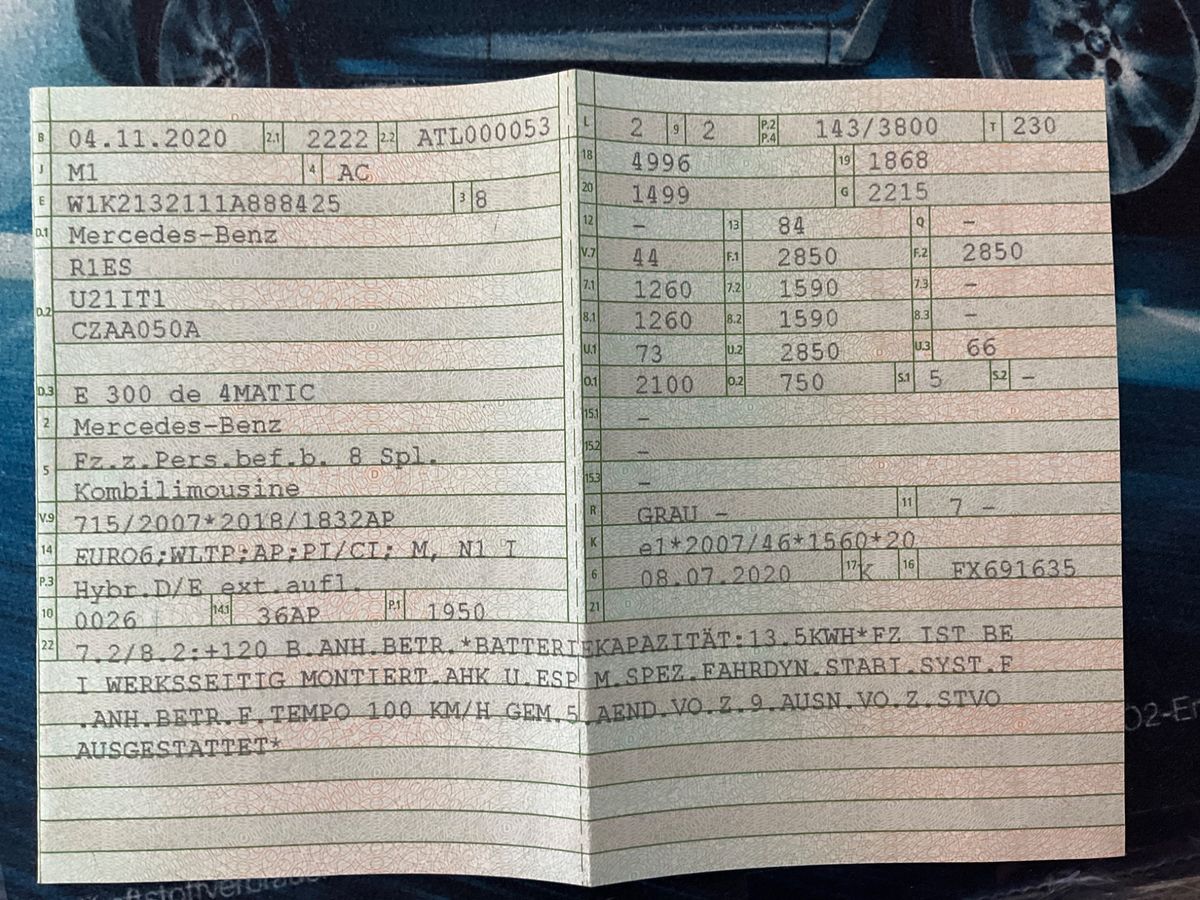 B 04.11.2020 2.1 2222 2.2 ATL000053
J M1 4 AC
E W1K2132111A888425 3 8
D.1 Mercedes-Benz
D.2 R1ES
U21IT1
CZAA050A
D.3 E 300 de 4MATIC
2 Mercedes-Benz
5 Fz.z.Pers.bef.b. 8 Spl.
Kombilimousine
V.9 715/2007*2018/1832AP
14 EURO6;WLTP;AP;PI/CI; M, N1 I
P.3 Hybr.D/E ext.aufl.
10 0026 14.1 36AP P.1 1950
L 2 9 2 P.2 P.4 143/3800 T 230
18 4996 19 1868
20 1499 G 2215
12 – 13 84 Q –
V.7 44 F.1 2850 F.2 2850
7.1 1260 7.2 1590 7.3 –
8.1 1260 8.2 1590 8.3 –
U.1 73 U.2 2850 U.3 66
O.1 2100 O.2 750 S.1 5 S.2 –
15.1 –
15.2 –
15.3 –
R GRAU – 11 7 –
K e1*2007/46*1560*20
6 08.07.2020 17 K 16 FX691635
21
22 7.2/8.2:+120 B.ANH.BETR.*BATTERIEKAPAZITÄT:13.5KWH*FZ IST BE
I WERKSSEITIG MONTIERT.AHK U.ESP M.SPEZ.FAHRDYN.STABI.SYST.F
.ANH.BETR.F.TEMPO 100 KM/H GEM.5.AEND.VO.Z.9.AUSN.VO.Z.STVO
AUSGESTATTET*